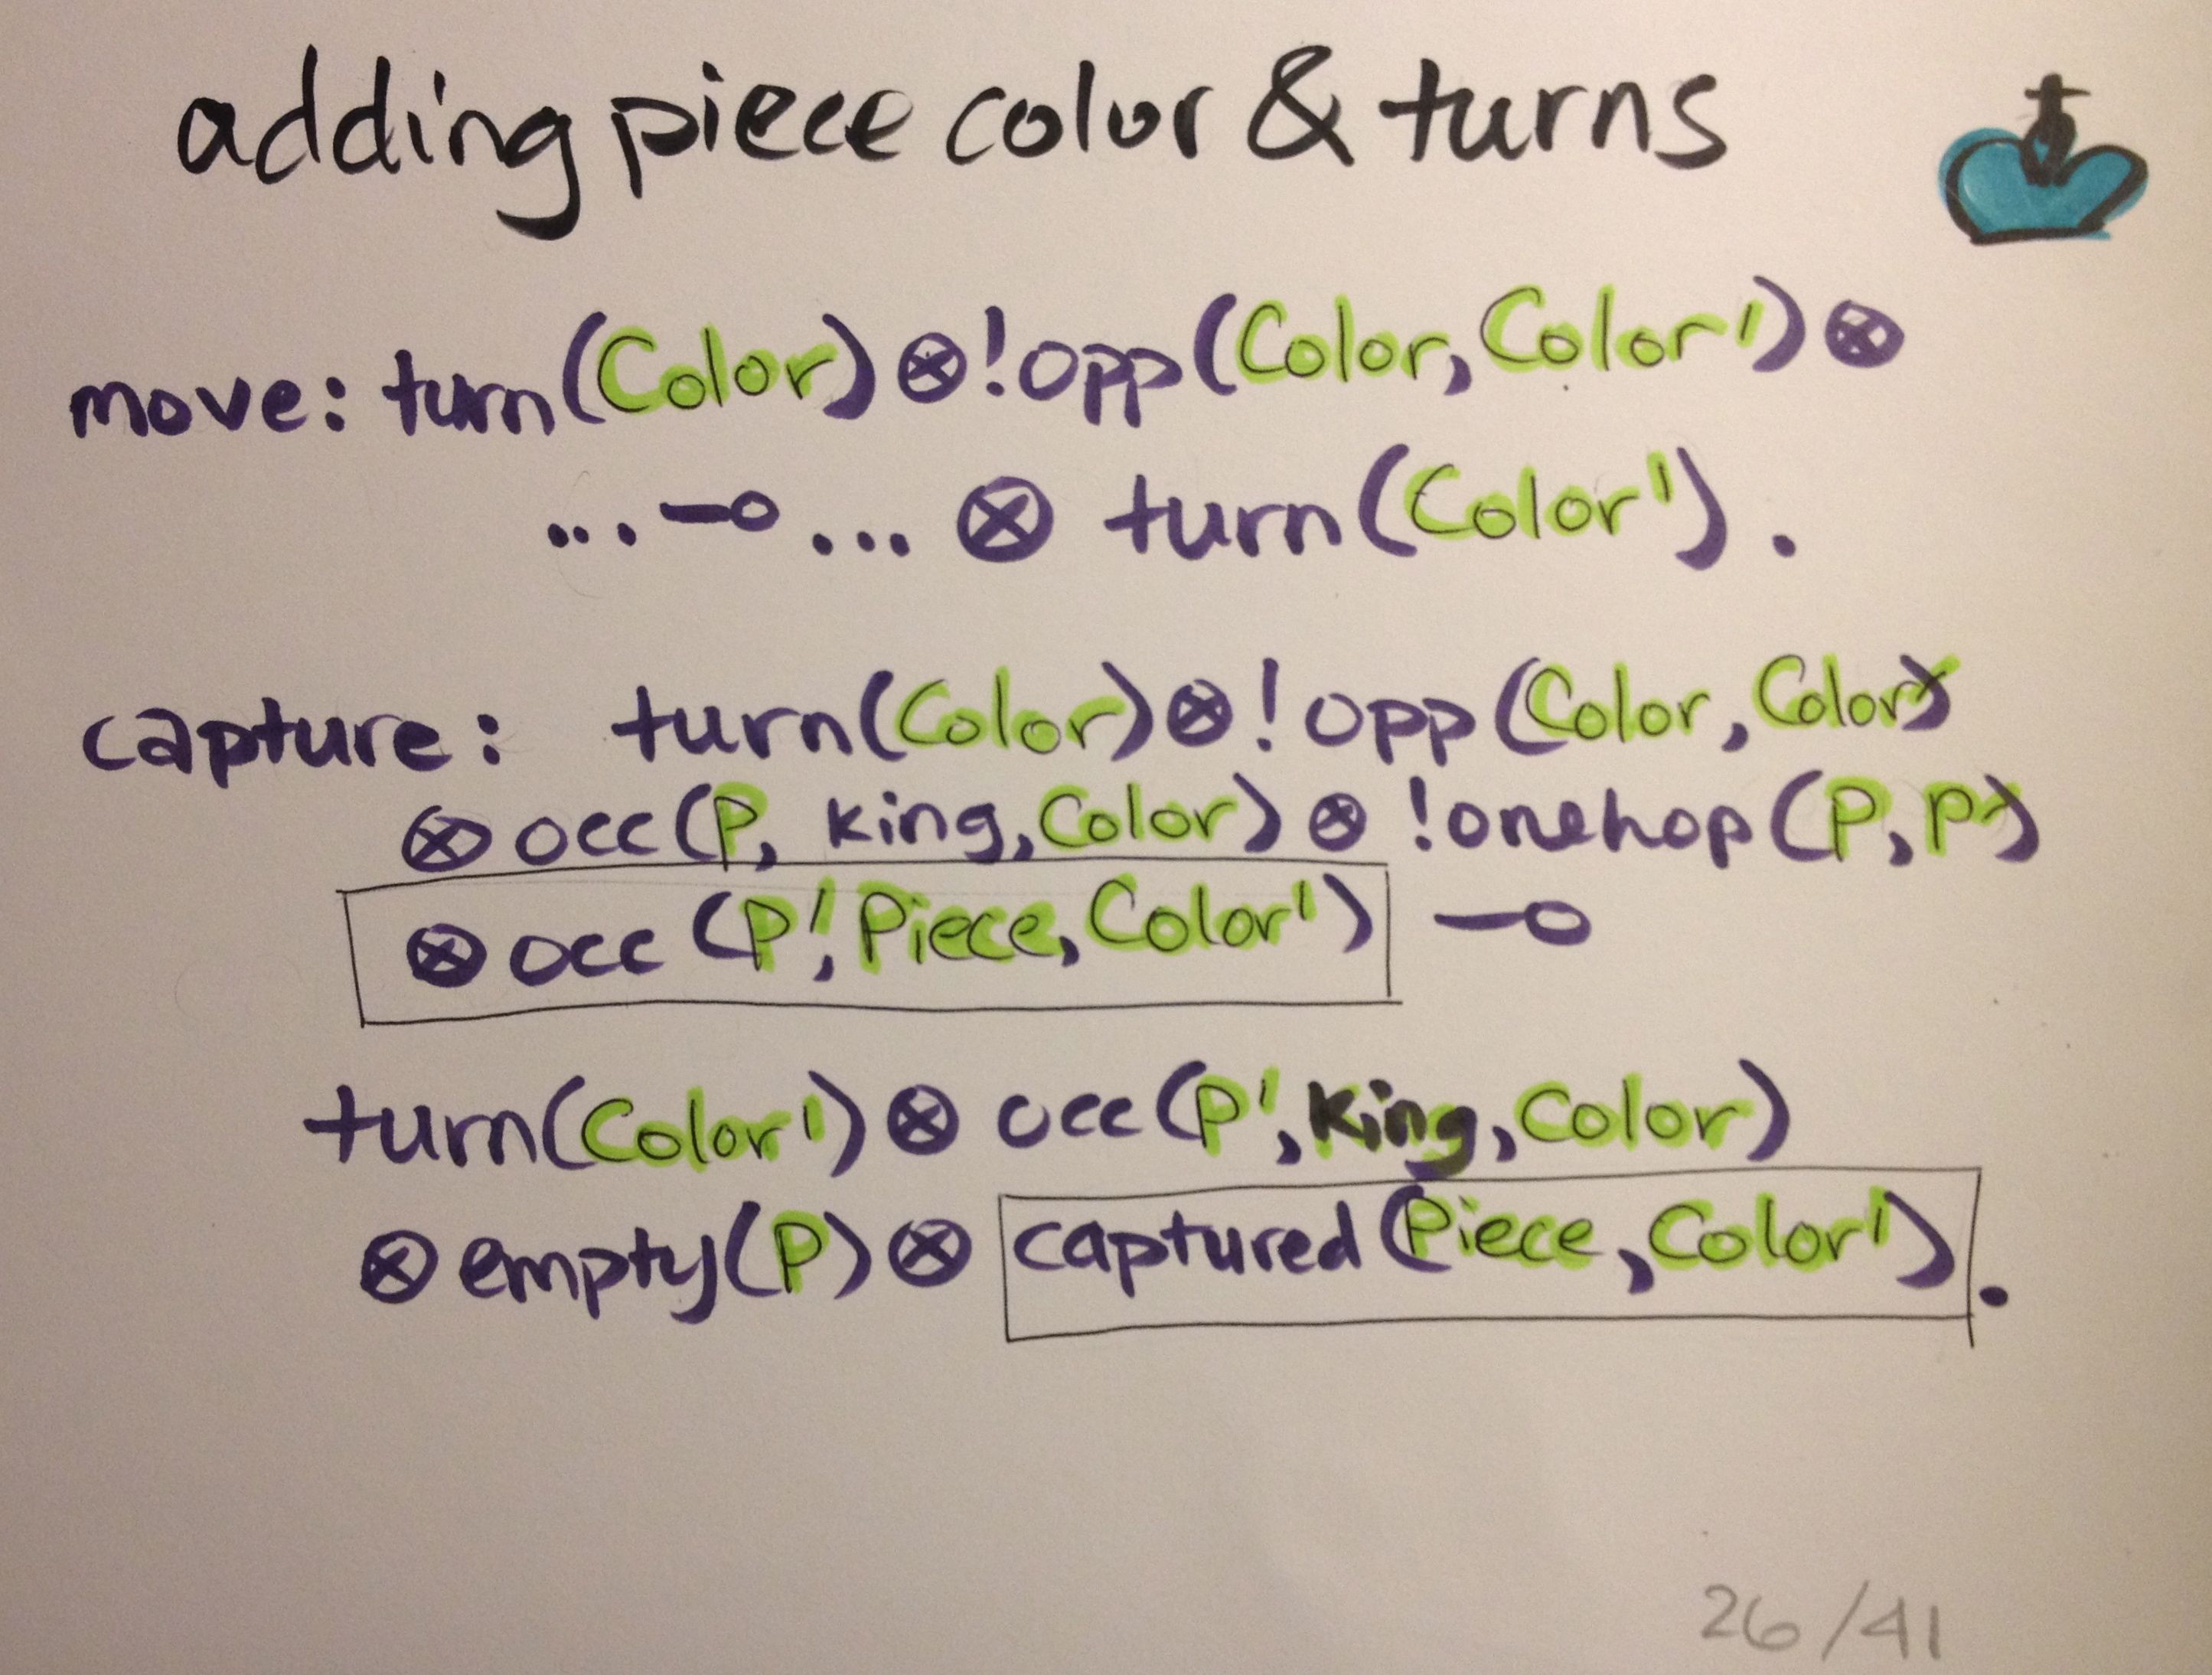 adding piece color & turns
move: turn(Color) ⊗ !opp(Color, Color') ⊗
... ⊸ ... ⊗ turn(Color').
capture: turn(Color) ⊗ ! opp(Color, Color')
⊗ occ(P, king, Color) ⊗ !onehop(P, P')
⊗ occ(P', Piece, Color') ⊸
turn(Color') ⊗ occ(P', king, Color)
⊗ empty(P) ⊗ captured(Piece, Color').
26/41